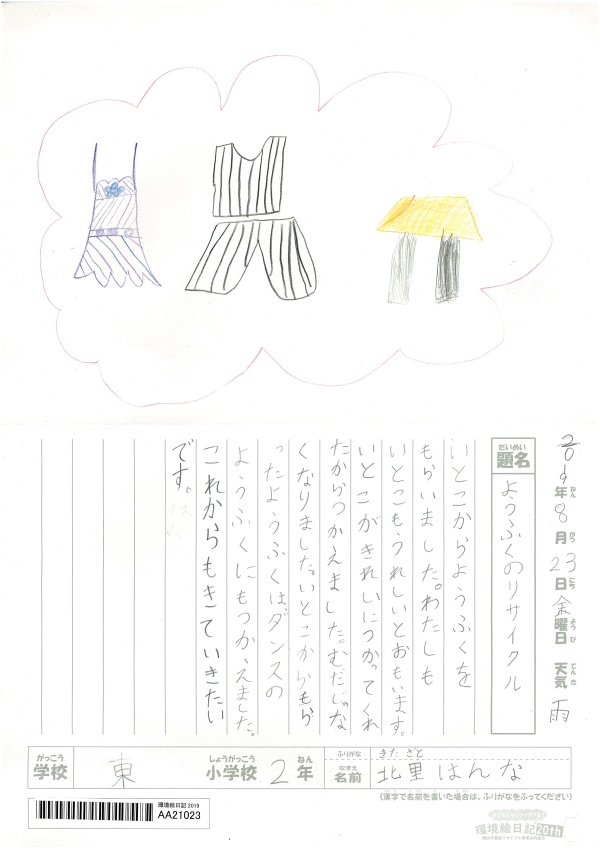 2019年8月23日金曜日 天気 雨
ねん がつ にち ようび てんき
だいめい
題名 ようふくのリサイクル
いとこからようふくを
もらいました。わたしも
いとこもうれしいとおもいます。
いとこがきれいにつかってくれ
たからつかえました。むだじゃな
くなりました。いとこからもら
ったようふくは、ダンスの
ようふくにもつかえました。
これからもきていきたい
です。
がっこう しょうがっこう ねん
学校 東 小学校 2年
ふりがな きた ざと
なまえ
名前 北里 はんな
(漢字で名前を書いた場合は、ふりがなをふってください)
環境絵日記 2019
AA21023
環境絵日記 20th